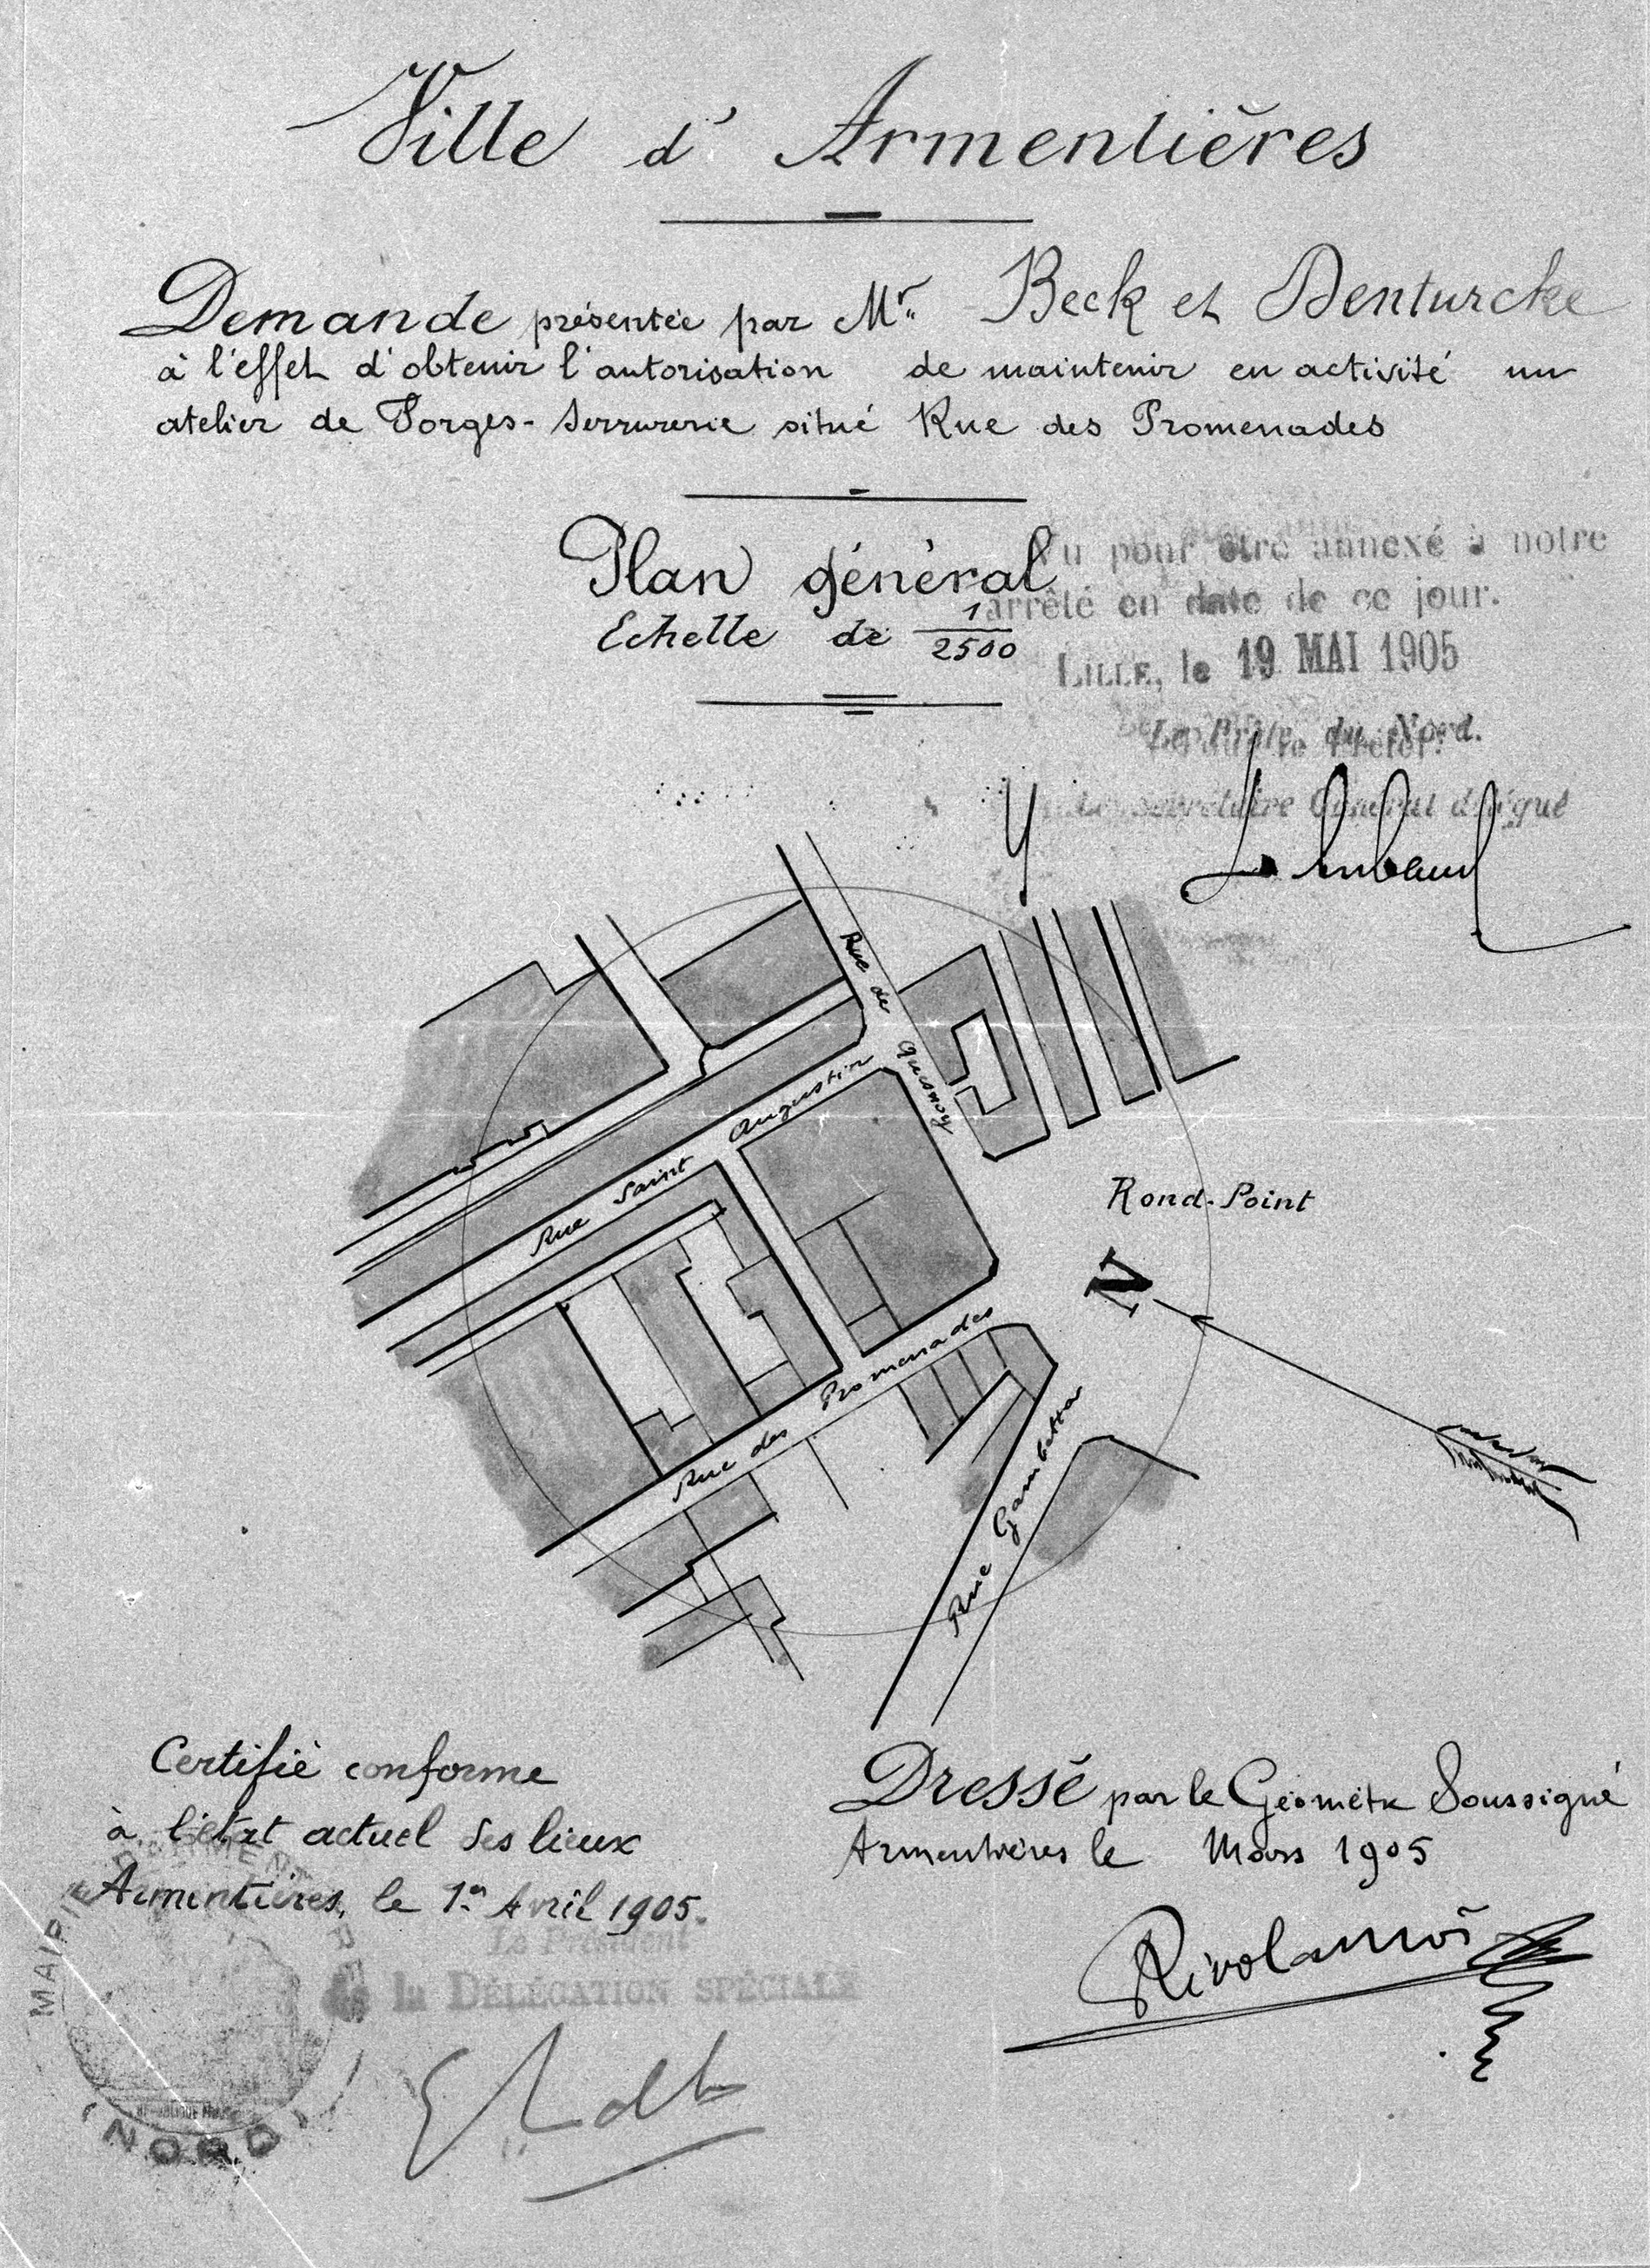 Ville d'Armentières
Demande présentée par Mr. Beck et Denturcke
à l'effet d'obtenir l'autorisation de maintenir en activité un
atelier de Forges-Serrurerie situé Rue des Promenades
Plan général
Echelle de 1/2500
Vu pour être annexé à notre
arrêté en date de ce jour.
LILLE, le 19 MAI 1905
Le Préfet du Nord.
Le Secrétaire Général délégué
Rue de Quesnoy
Rue Saint Augustin
Rond-Point
N
Rue des Promenades
Rue Gambetta
Certifié conforme
à l'état actuel des lieux
Armentières, le 1er Avril 1905.
Le Président
de la DÉLÉGATION SPÉCIALE
MAIRIE D'ARMENTIÈRES
NORD
Dressé par le Géomètre Soussigné
Armentières le Mars 1905